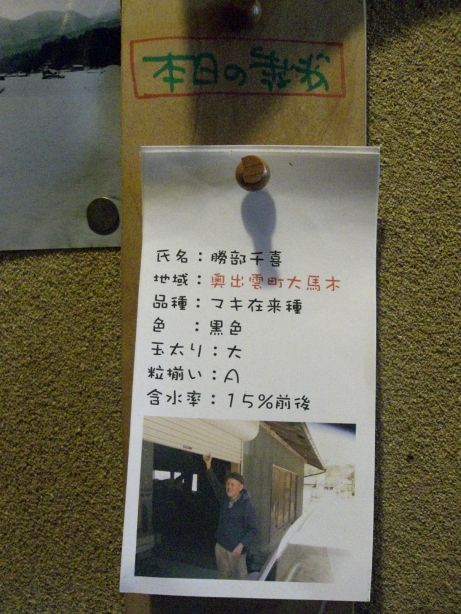 本日の蕎麦
氏名：勝部千喜
地域：奥出雲町大馬木
品種：マキ在来種
色　：黒色
玉太り：大
粒揃い：A
含水率：15％前後